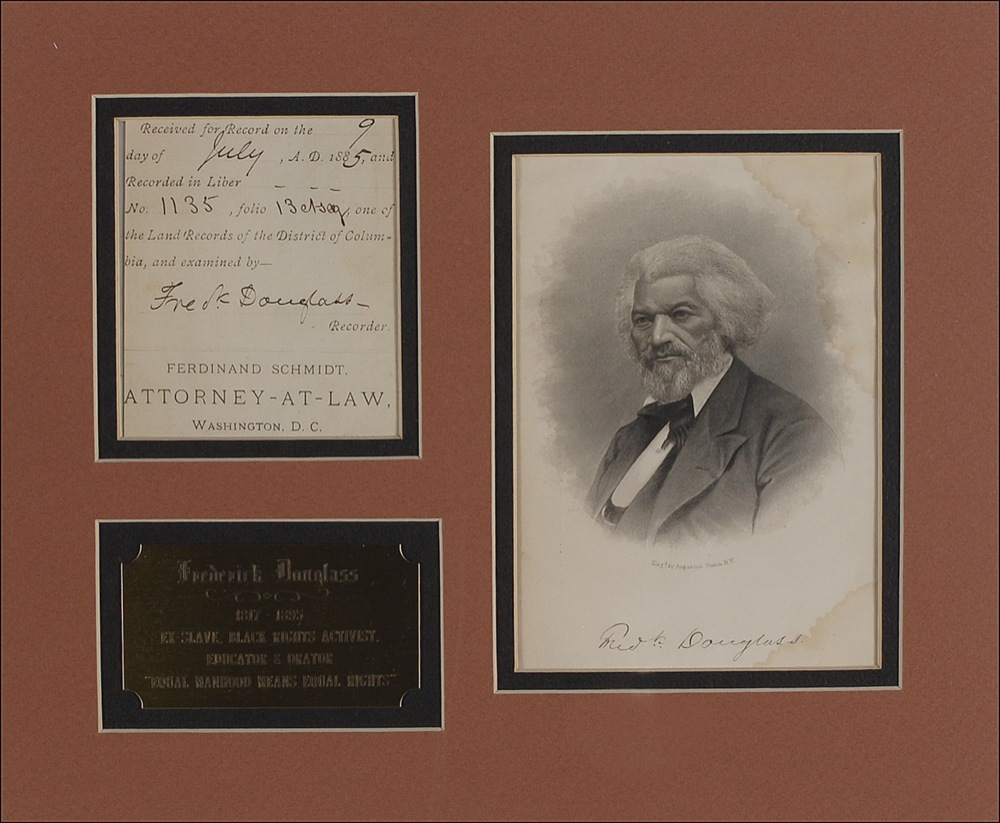 Received for Record on the 9
day of July, A. D. 1885, and
Recorded in Liber - - -
No. 1135, folio 13 etseq, one of
the Land Records of the District of Colum-
bia, and examined by—
Fredk Douglass
Recorder.
FERDINAND SCHMIDT,
ATTORNEY-AT-LAW,
WASHINGTON, D. C.
Frederick Douglass
1817 - 1895
EX-SLAVE, BLACK RIGHTS ACTIVIST,
EDUCATOR & ORATOR
"EQUAL MANHOOD MEANS EQUAL RIGHTS"
Eng'd by Augustus Robin, N.Y.
Fredk. Douglass.